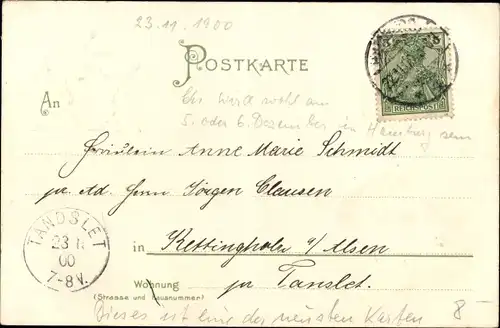 23.11.1900
POSTKARTE
5
REICHSPOST
An
Chr. wird wohl am
5. oder 6. Dezember in Hamburg sein
Fräulein Anne Marie Schmidt
pr. Ad. Herrn Jörgen Clausen
in Kettingholm a/ Alsen
Wohnung pr Tanslet.
(Strasse und Hausnummer)
TANDSLET
23 11
00
7-8V.
Dieses ist eine der neusten Karten 8-